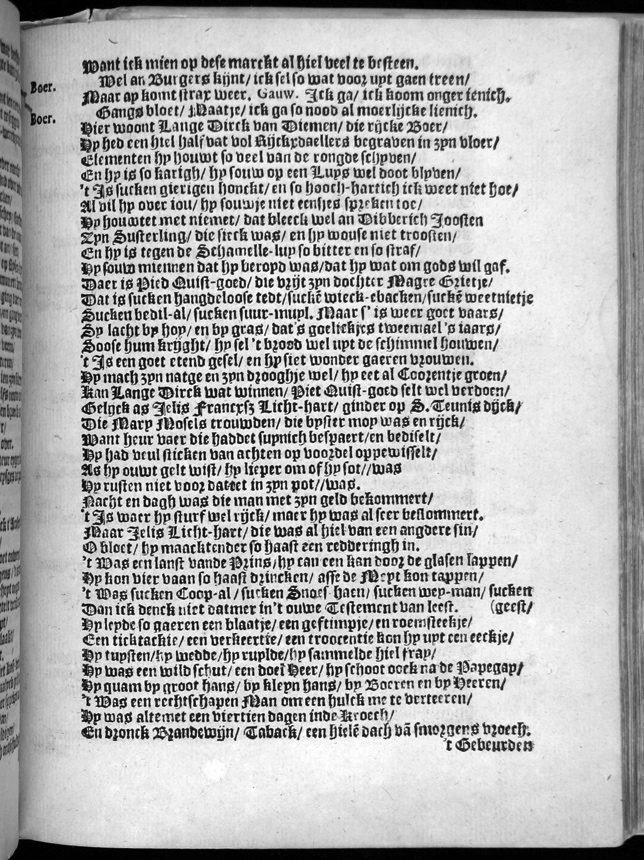 Want ick mien op dese marckt al hiel veel te besteen.
Boer. Wel an Burgers kijnt/ ick sel so wat voor uyt gaen treen/
Maar ay komt strax weer. Gauw. Ick ga/ ick koom onger ienich.
Boer. Gangs bloet/ Maatje/ ick ga so nood al moerlijcke lienich.
Hier woont Lange Dirck van Diemen/ die rijcke Boer/
Hy hed een hiel half vat vol Rijckxdaellers begraven in zyn vloer/
Elementen hy houwt so veel van de rongde schyven/
En hy is so karigh/ hy souw op een Luys wel doot blyven/
't Is sucken gierigen honckt/ en so hooch-hartich ick weet niet hoe/
Al vil hy over iou/ hy souwje niet eensjes spreken toe/
Hy houwtet met niemet/ dat bleeck wel an Dibberich Joosten
Zyn Susterling/ die sieck was/ en hy wouse niet troosten/
En hy is tegen de Schamelle-luy so bitter en so straf/
Hy souw miennen dat hy beroyd was/ dat hy wat om gods wil gaf.
Daer is Pied Quist-goed/ die vrijt zyn dochter Magre Grietje/
Dat is sucken hangdeloose tedt/ suckē wieck-ebacken/ suckē weetnietje
Sucken bedil-al/ sucken suur-muyl. Maar s' is weer goet vaars/
Sy lacht by hoy/ en by gras/ dat's goeliekjes tweemael 's iaars/
Soose hum krijght/ hy sel 't brood wel uyt de schimmel houwen/
't Is een goet etend gesel/ en hy siet wonder gaeren vrouwen.
Hy mach zyn natge en zyn drooghje wel/ hy eet al Coorentje groen/
Kan Lange Dirck wat winnen/ Piet Quist-goed selt wel verdoen/
Gelyck as Jelis Francxsz Licht-hart/ ginder op S. Teunis dijck/
Die Mary Mosels trouwden/ die byster moy was en rijck/
Want heur vaer die haddet suynich bespaert/ en bediselt/
Hy had veul sticken van achten op voordel oppewisselt/
As hy ouwt gelt wist/ hy lieper om of hy sot//was
Hy rusten niet voor dattet in zyn pot//was.
Nacht en dagh was die man met zyn geld bekommert/
't Is waer hy sturf wel rijck/ maer hy was al seer beslommert.
Maar Jelis Licht-hart/ die was al hiel van een angdere sin/
O bloet/ hy maacktender so haast een redderingh in.
't Was een lanst vande Prins/ hy can een kan door de glasen lappen/
Hy kon vier vaan so haast drincken/ asse de Meyt kon tappen/
't Was sucken Coop-al/ sucken Snoes haen/ sucken wey-man/ sucken
Dan ick denck niet datmer in 't ouwe Testement van leest. (geest/
Hy leyde so gaeren een blaatje/ een geftimpje/ en roemsteekje/
Een ticktackie/ een verkeertie/ een troocentie kon hy upt een eeckje/
Hy tuysten/ hy wedde/ hy ruylde/ hy sammelde hiel fray/
Hy was een wild schut/ een doel Heer/ hy schoot oock na de Papegay/
Hy quam by groot hans/ by kleyn hans/ by Boeren en by Heeren/
't Was een rechtschapen Man om een hulck me te verteeren/
Hy was altemet een viertien dagen inde Kroech/
En dronck Brandewijn/ Taback/ een hielē dach vā smorgens vroech.
't Gebeurden